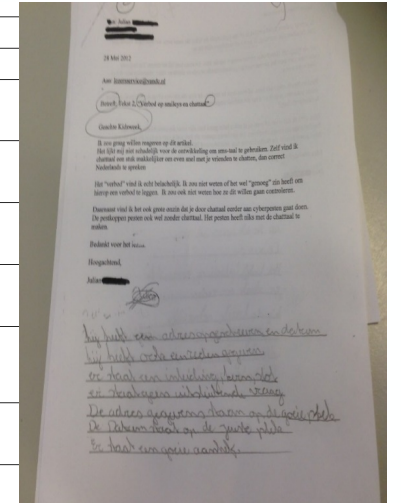 Julian
28 Mei 2012
Aan: lezersservice@
Betreft: Tekst 2, "Verbod op smileys en chattaal"
Geachte Kidsweek,
Ik zou graag willen reageren op dit artikel.
Het lijkt mij niet schadelijk voor de ontwikkeling om sms-taal te gebruiken. Zelf vind ik
chattaal een stuk makkelijker om even snel met je vrienden te chatten, dan correct
Nederlands te spreken
Het "verbod" vind ik echt belachelijk. Ik zou niet weten of het wel "genoeg" zin heeft om
hierop een verbod te leggen. Ik zou ook niet weten hoe ze dit willen gaan controleren.
Daarnaast vind ik het ook grote onzin dat je door chattaal eerder aan cyberpesten gaat doen.
De pestkoppen pesten ook wel zonder chattaal. Het pesten heeft niks met de chattaal te
maken.
Bedankt voor het lezen
Hoogachtend,
Julian
hij heeft een adres en datum
hij heeft reden gegeven
er staat een inleiding, kern, slot
er staat geen vraag
De adres gegevens staan op de goeie plek
De Datum staat op de juiste plek
Er staat een goeie aanhef.